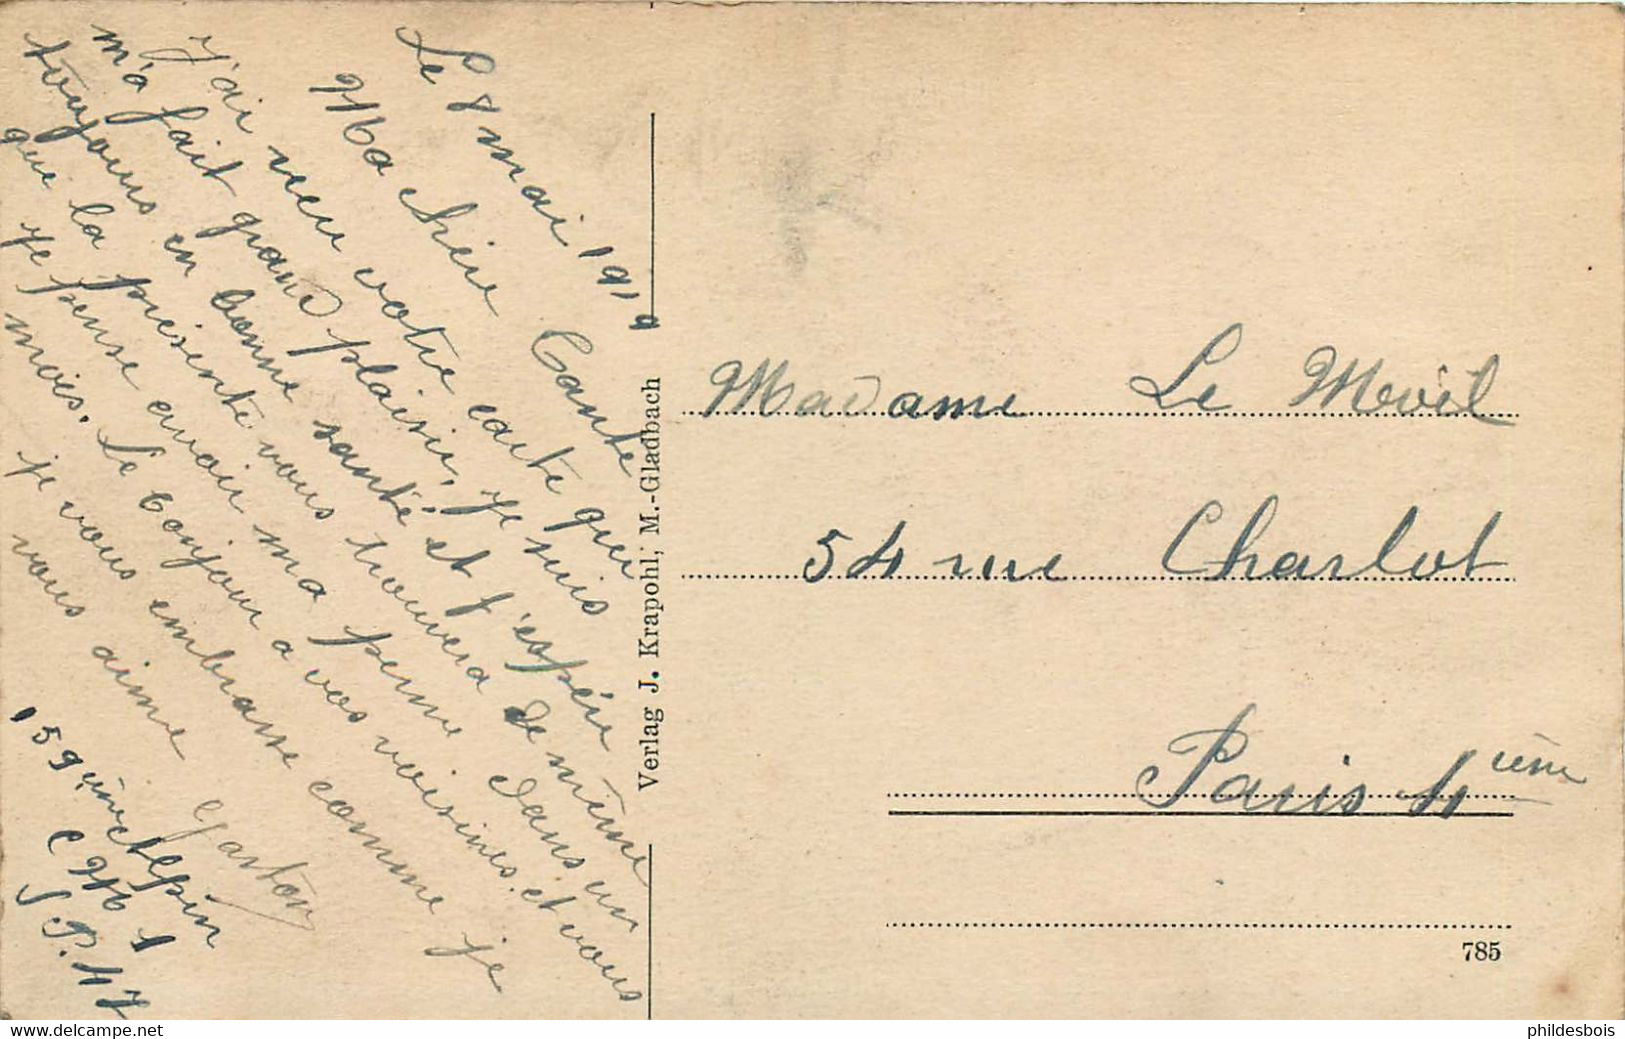 Le 8 mai 1919
Ma chère Tante
J'ai reçu votre carte qui
m'a fait grand plaisir, je suis
toujours en bonne santé et j'espère
que la présente vous trouvera de même
je pense avoir ma perme dans un
mois. Le bonjour a vos voisines. et vous
je vous embrasse comme je
vous aime
Gaston
159 ième Alpin
C M 1
S.P. 47
Verlag J. Krapohl, M.-Gladbach
Madame Le Movil
54 rue Charlot
Paris 4 ième
785
www.delcampe.net
phildesbois